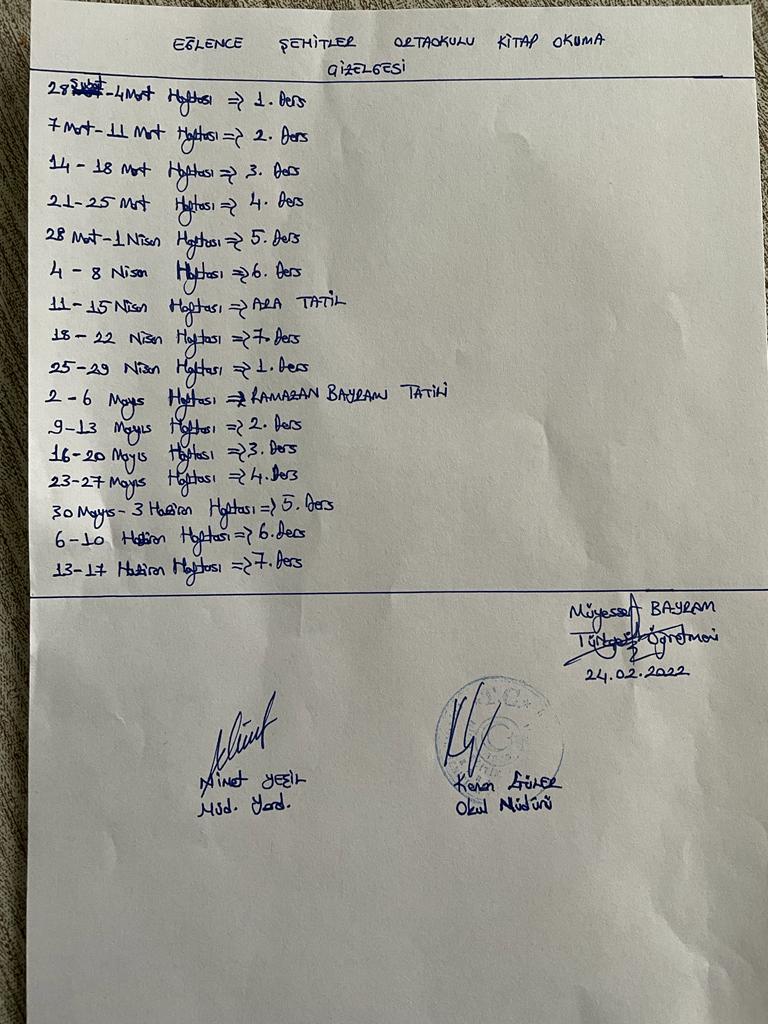 EĞLENCE ŞEHİTLER ORTAOKULU KİTAP OKUMA
ÇİZELGESİ
28 Şubat - 4 Mart Haftası => 1. Ders
7 Mart - 11 Mart Haftası => 2. Ders
14 - 18 Mart Haftası => 3. Ders
21-25 Mart Haftası => 4. Ders
28 Mart - 1 Nisan Haftası => 5. Ders
4 - 8 Nisan Haftası => 6. Ders
11 - 15 Nisan Haftası => ARA TATİL
18 - 22 Nisan Haftası => 7. Ders
25-29 Nisan Haftası => 1. Ders
2 - 6 Mayıs Haftası => RAMAZAN BAYRAMI TATİLİ
9-13 Mayıs Haftası => 2. Ders
16-20 Mayıs Haftası => 3. Ders
23-27 Mayıs Haftası => 4. Ders
30 Mayıs - 3 Haziran Haftası => 5. Ders
6-10 Haziran Haftası => 6. Ders
13-17 Haziran Haftası => 7. Ders
Müyesser BAYRAM
Türkçe Öğretmeni
24.02.2022
T.C.
YEŞİL
Müd. Yard.
Kenan GÜLER
Okul Müdürü